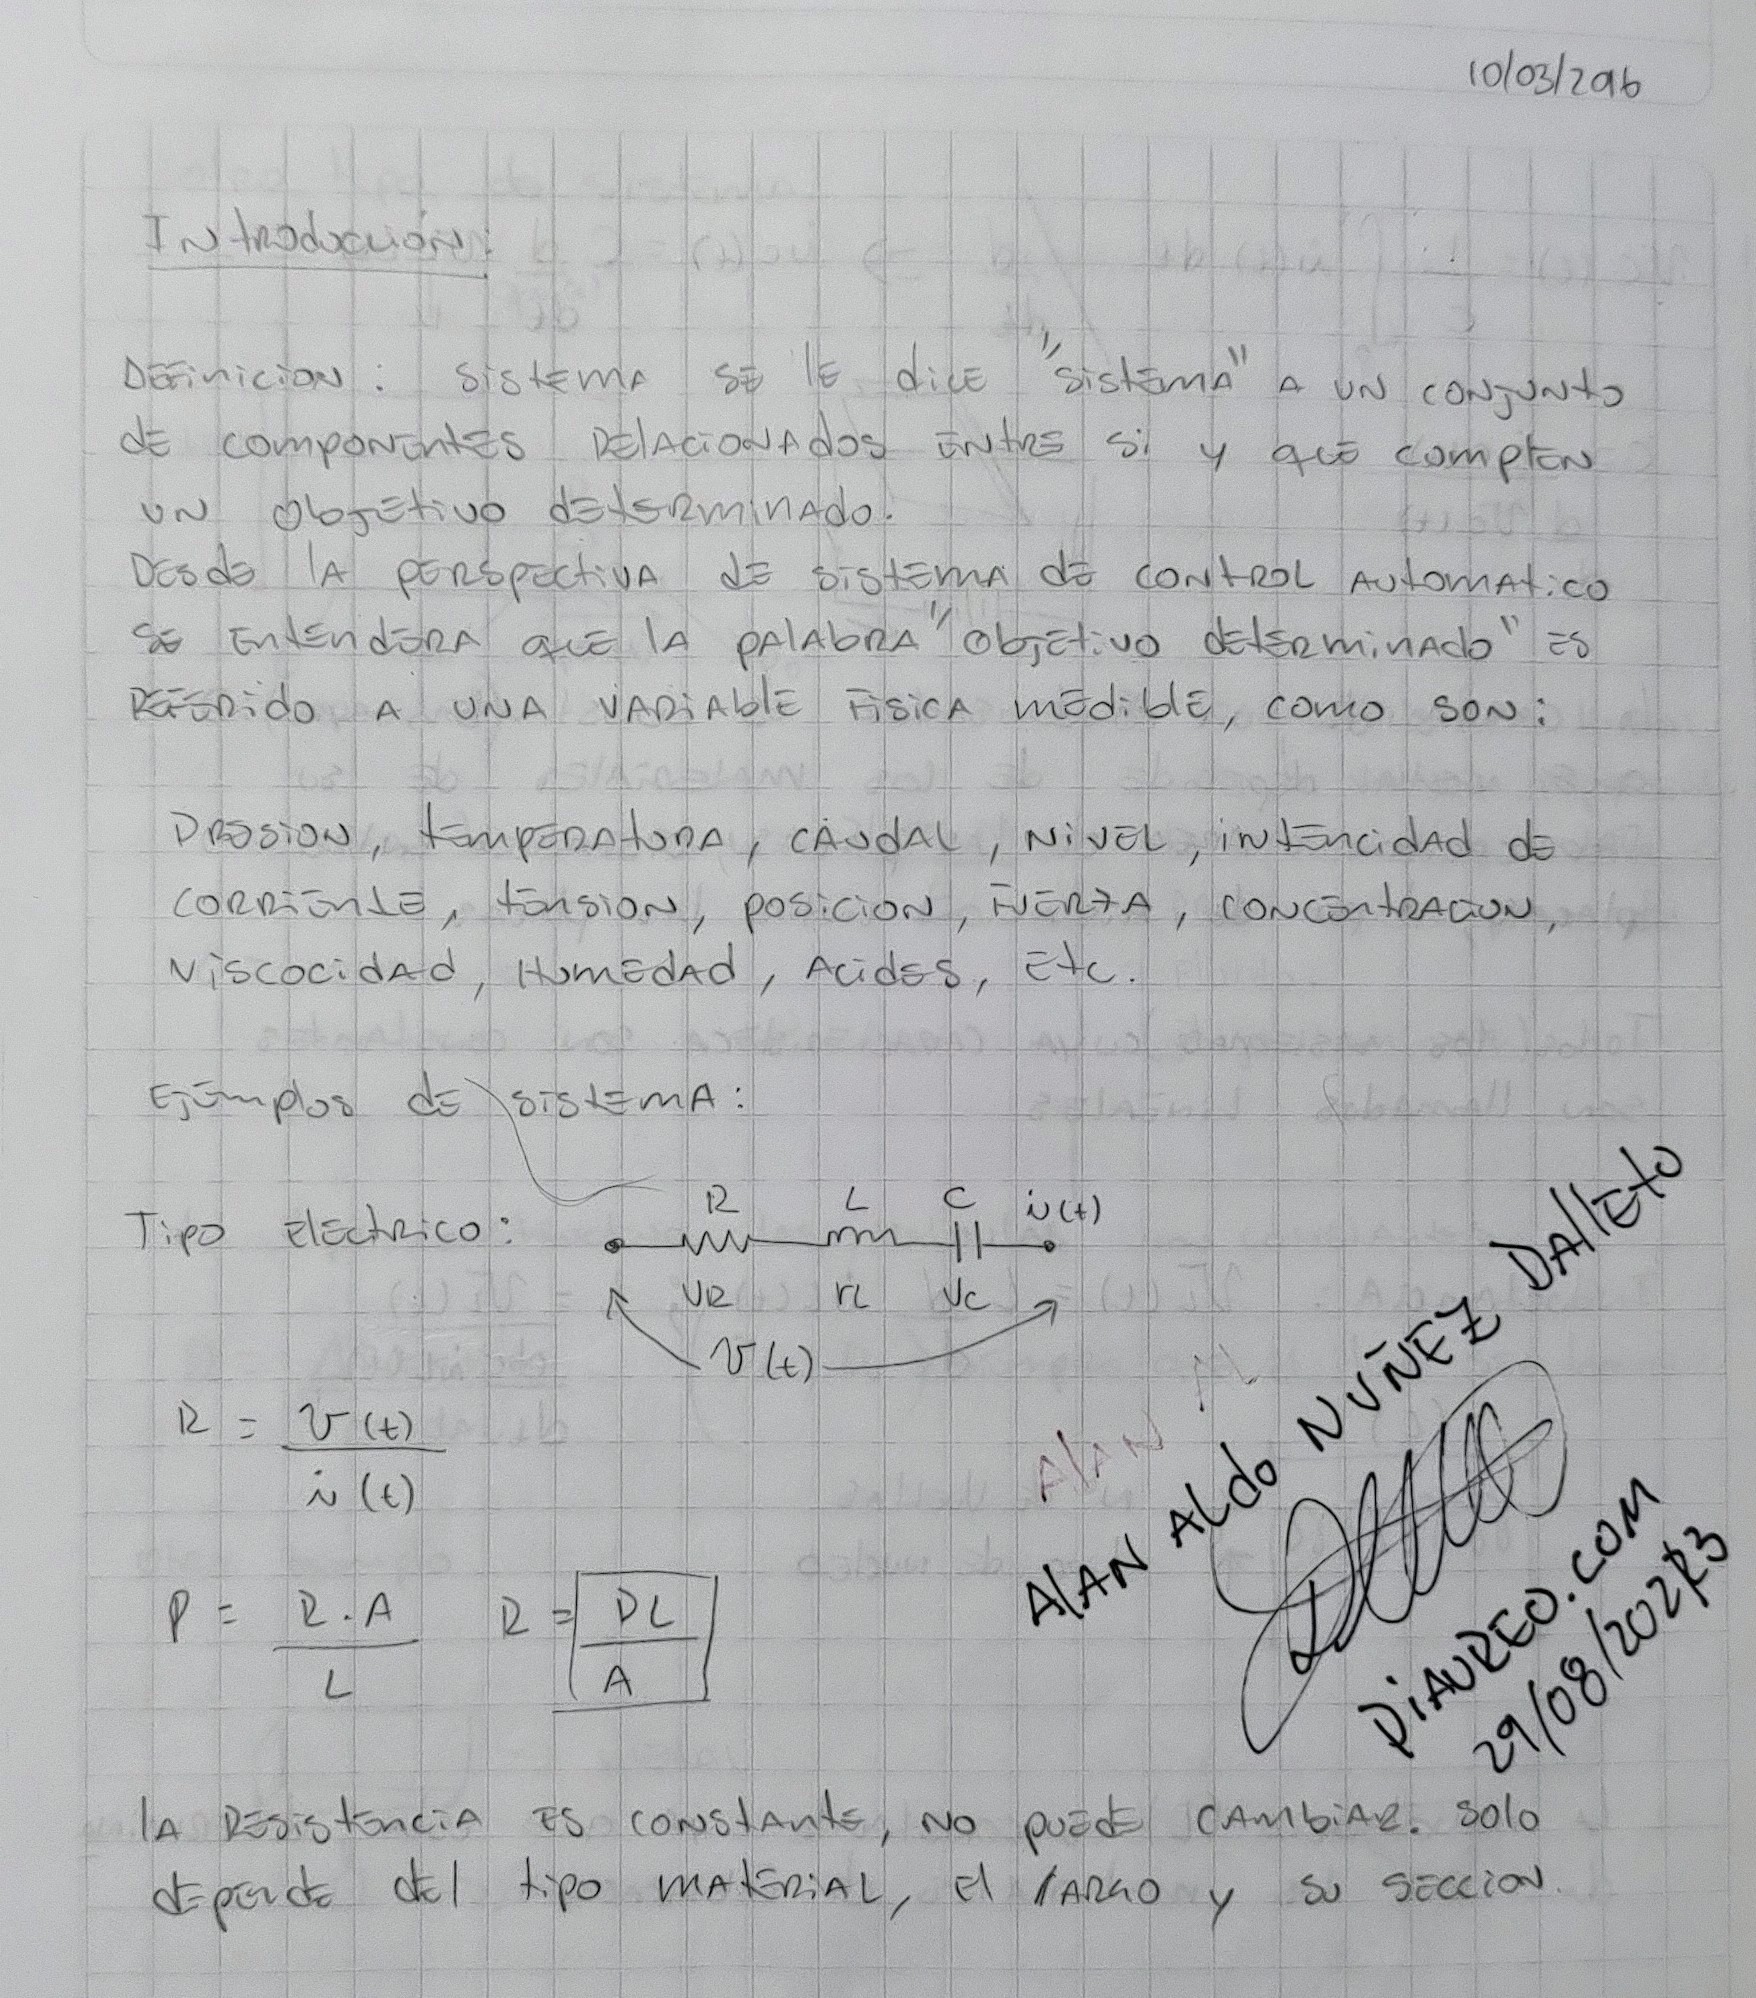 10/03/2016
Introducción:
Definicion: sistema se le dice "sistema" a un conjunto
de componentes relacionados entre si y que complen
un objetivo determinado.
Desde la perspectiva de sistema de control automatico
se entendera que la palabra "objetivo determinado" es
referido a una variable fisica medible, como son:
Presion, temperatura, caudal, nivel, intencidad de
corriente, tension, posicion, fuerza, concentracion,
viscocidad, Humedad, Acides, Etc.
Ejemplos de sistema:
Tipo electrico:
R L C i(t)
VR VL VC
v(t)
R = v(t)
i(t)
P = R.A
L
R = PL
A
la resistencia es constante, no puede cambiar. solo
depende del tipo material, el largo y su seccion.
Alan
Alan Aldo Nuñez Dalleto
Diaureo.com
29/08/2023